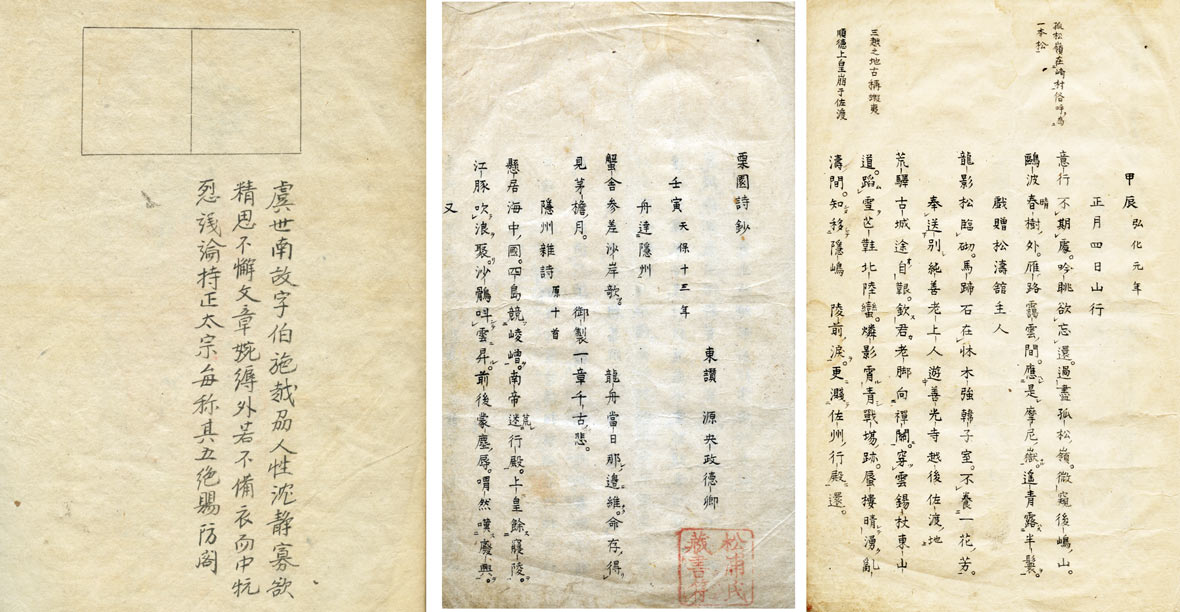 虞世南故字伯施越刕人性沈静寡欲
精思不懈文章婉縟外若不備衣而中抗
烈議論持正太宗每称其五絶賜防閣
栗園詩鈔
東讃 源央政德卿
壬寅 天保十三年
舟達隱州
蟹舎参差沙岸歌。龍舟當日那邊維。命存得
見茅檐月。御製一章千古悲。
隱州雜詩 原十首
懸居海中國。四島競崚嶒。南帝迷荒行殿。上皇餘寢陵。
江豚吹浪聚。沙鶻叫雲昇。前後蒙塵辱。喟然嘆廢興。
又
松浦氏
藏書印
甲辰 弘化元年
正月四日山行
孤松嶺在崎村俗呼為
一本松
意行不期處。吟眺欲忘還。過盡孤松嶺。微窺後嶋山。
鷗波春晴樹外。雁路靄雲間。應是摩尼嶽。遙青露半鬟。
戯贈松濤舘主人
龍影松臨砌。馬蹄石在牀。木強韓子室。不養一花芳。
奉送別純善老上人遊善光寺越後佐渡地
荒驛古城途自艱。欽君老脚向禪關。穿雲錫杖東山
道。蹈雪芒鞋北陸蠻。燐影宵青戰場跡。蜃樓晴湧亂
三越之地古稱蝦夷
順德上皇崩于佐渡
濤間。知移隱嶋 陵前淚。更濺佐州行殿還。